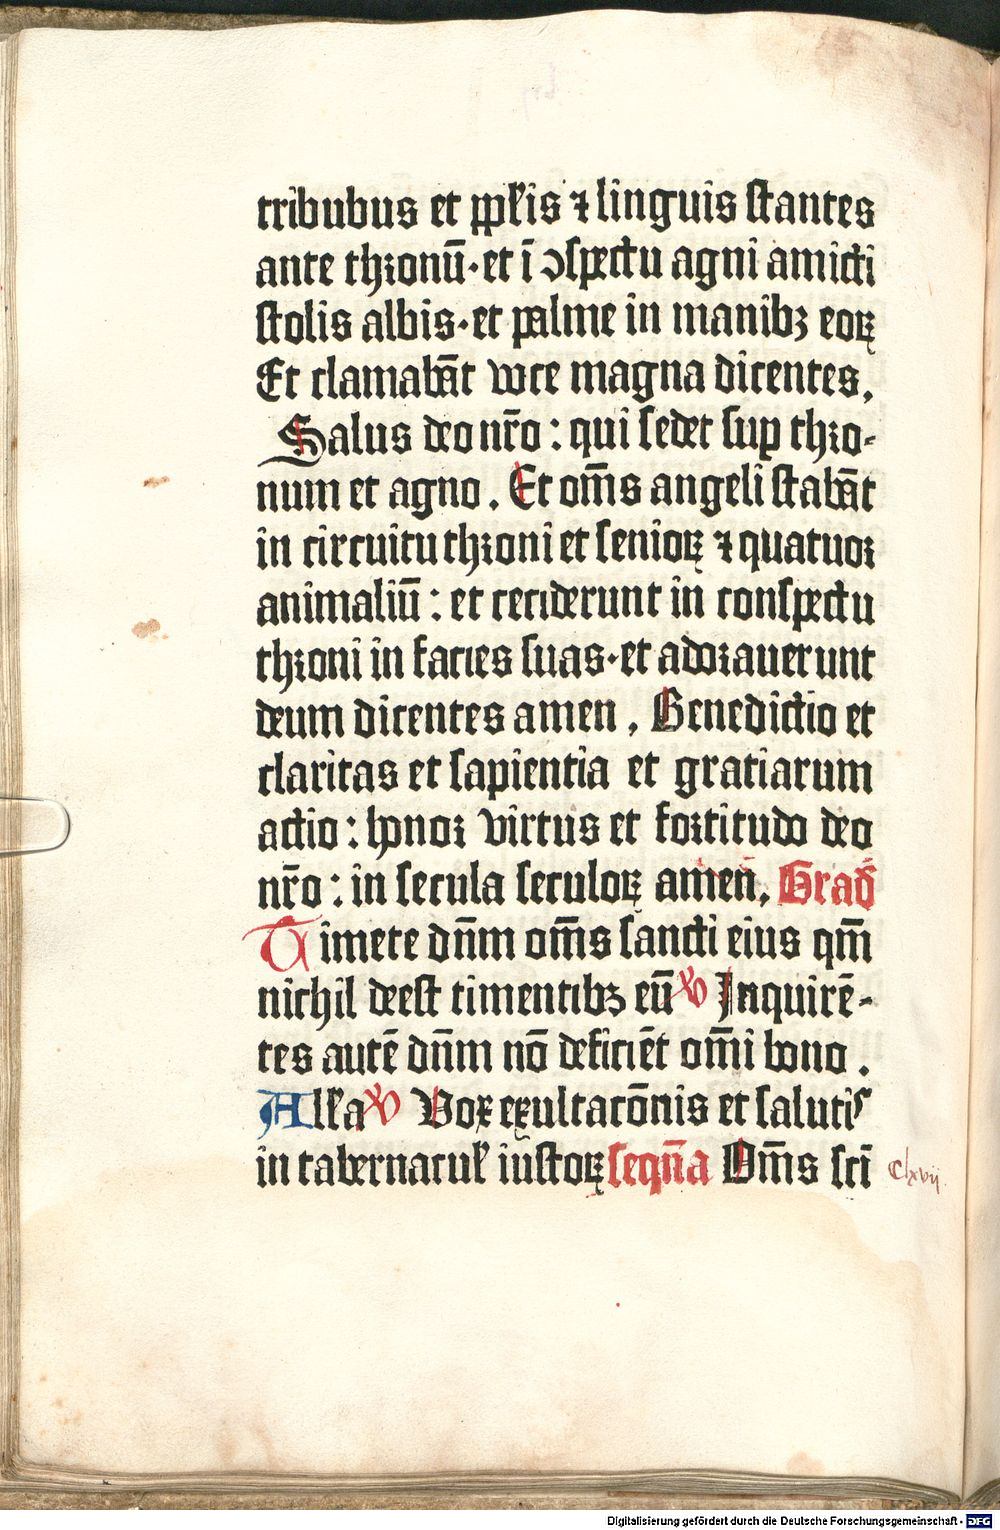 tribubus et ppľis ⁊ linguis stantes
ante thronū·et ī ↄspectu agni amicti
stolis albis·et palme in manibꝫ eoꝝ
Et clamabāt voce magna dicentes.
Salus deo nr̄o : qui sedet suꝑ thro-
num et agno. Et om̄s angeli stabāt
in circuitu throni et senioꝝ ⁊ quatuor
animaliū : et ceciderunt in conspectu
throni in facies suas·et adorauerunt
deum dicentes amen. Benedictio et
claritas et sapientia et gratiarum
actio : honor virtus et fortitudo deo
nr̄o : in secula seculoꝝ amen̄. Grad̄
Timete dn̄m om̄s sancti eius qm̄
nichil deest timentibꝫ eū ℣ Inquirē-
tes autē dn̄m nō deficiēt om̄i bono.
Alľa ℣ Vox exultacōnis et salutiˢ
in tabernacuľ iustoꝝ seqn̄a Om̄s scī
Clxvij
Digitalisierung gefördert durch die Deutsche Forschungsgemeinschaft - DFG